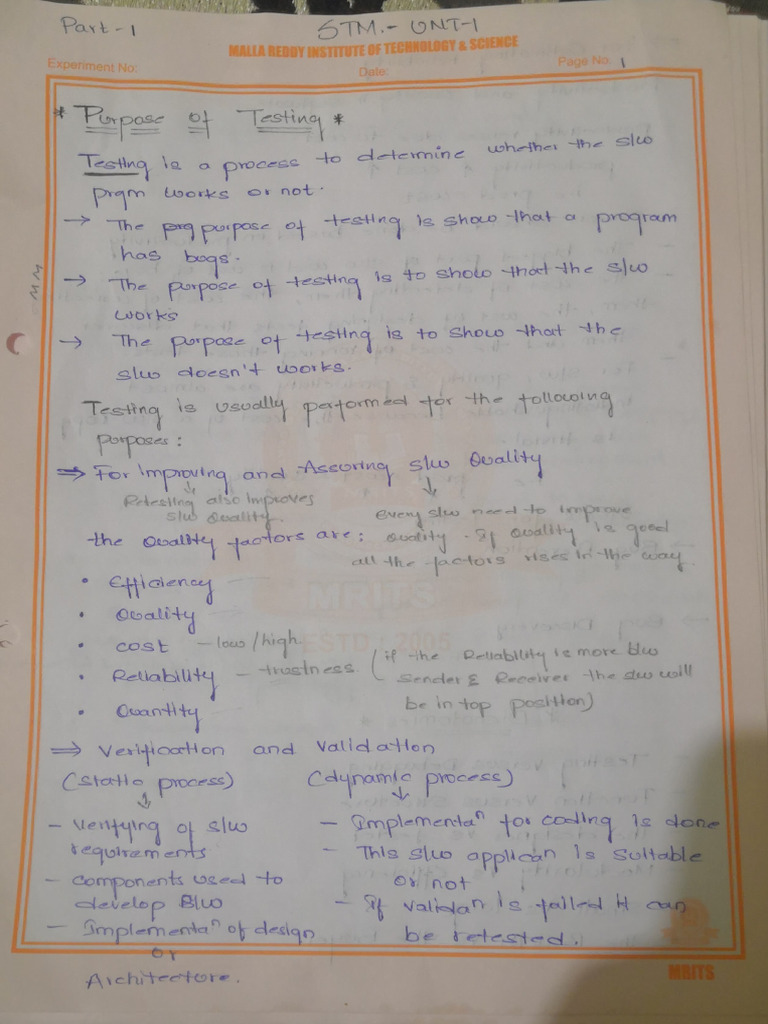 Part-1
STM. - UNT-1
MALLA REDDY INSTITUTE OF TECHNOLOGY & SCIENCE
Experiment No:
Date:
Page No. 1
* Purpose of Testing *
Testing is a process to determine whether the s/w
prgm works or not.
→ The prg purpose of testing is show that a program
has bugs.
→ The purpose of testing is to show that the s/w
works
→ The purpose of testing is to show that the
s/w doesn't works.
Testing is usually performed for the following
purposes:
⇒ For improving and Assuring s/w Quality
Retesting also improves
s/w Quality.
Every s/w need to improve
Quality. If Quality is good
all the factors rises in the way.
the Quality factors are:
• Efficiency
• Quality
• cost - low/high.
• Reliability - trustness (if the Reliability is more b/w
Sender & Receiver the s/w will
be in top position)
• Quantity
⇒ Verification and Validation
(static process) (dynamic process)
- Verifying of s/w
requirements
- components used to
develop s/w
- Implementaⁿ of design
or
Architecture.
- Implementaⁿ for coding is done
- This s/w applican is suitable
or not
- If validaⁿ is failed it can
be retested.
MRITS
ESTD : 2005
MRITS